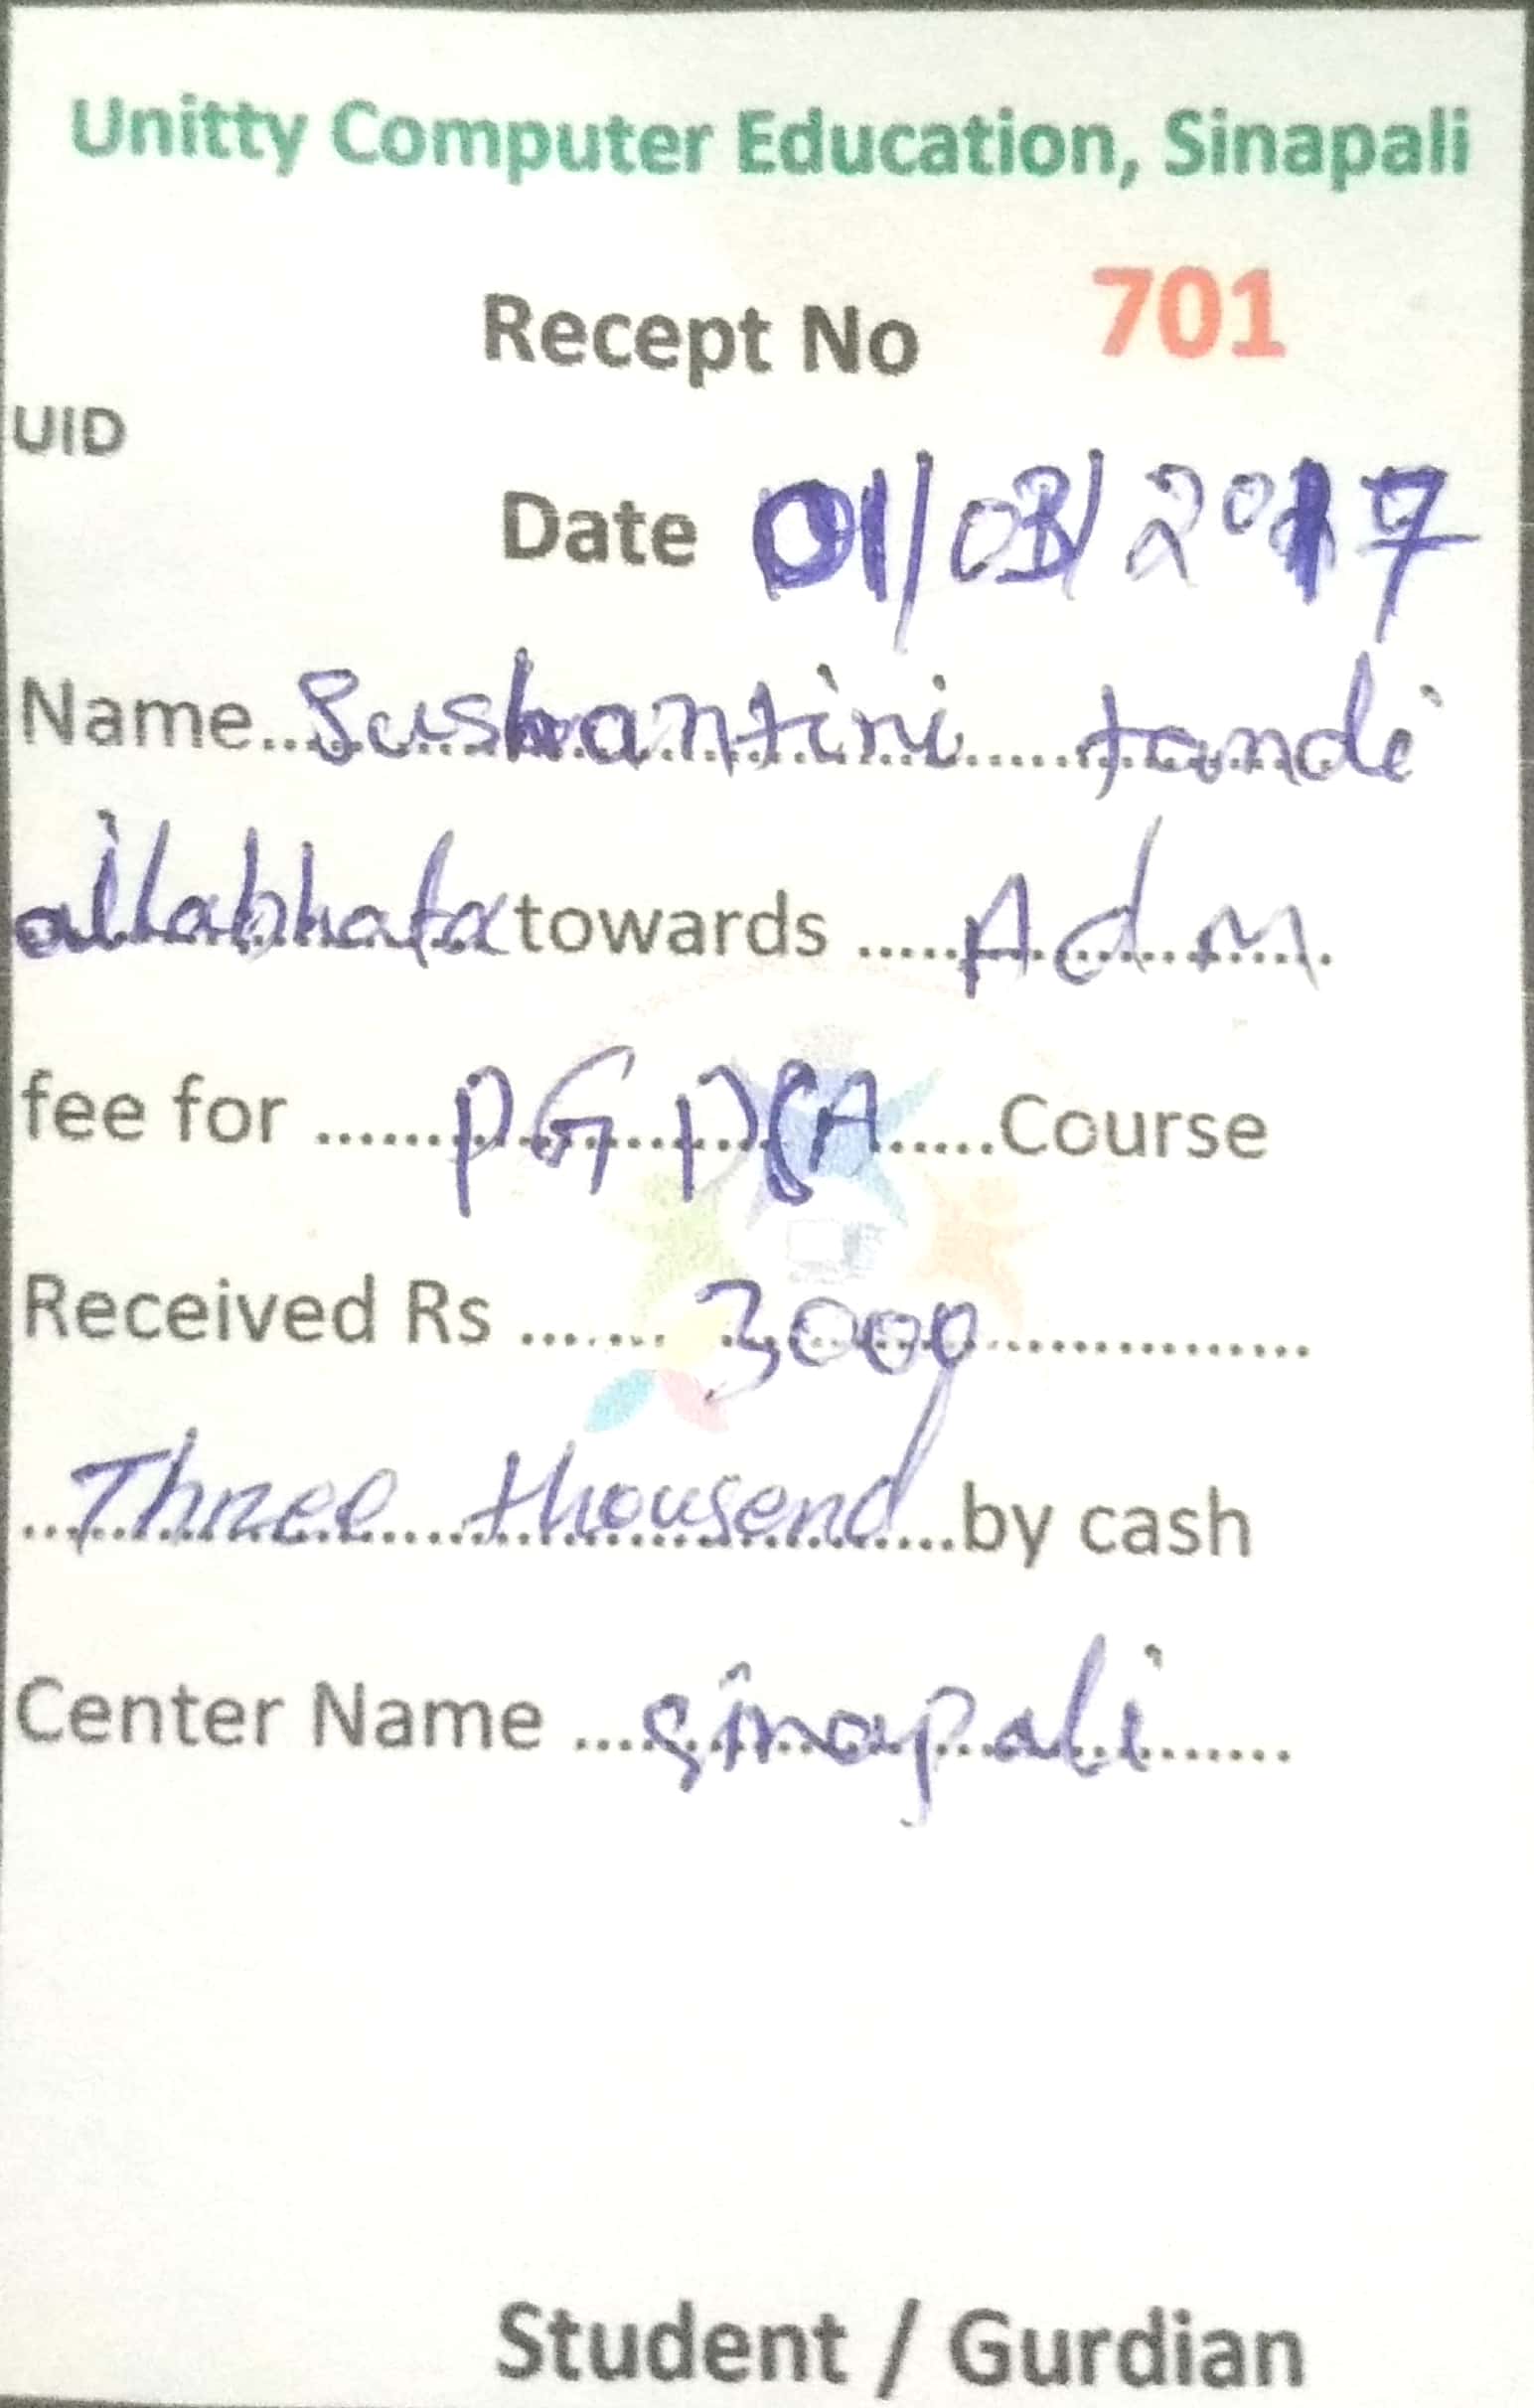 Unitty Computer Education, Sinapali
Recept No 701
UID
Date 01/03/2017
Name Sushantini tandi
allabhata towards Adm
fee for PGDCA Course
Received Rs 3000
Three thousend by cash
Center Name sinapali
Student / Gurdian